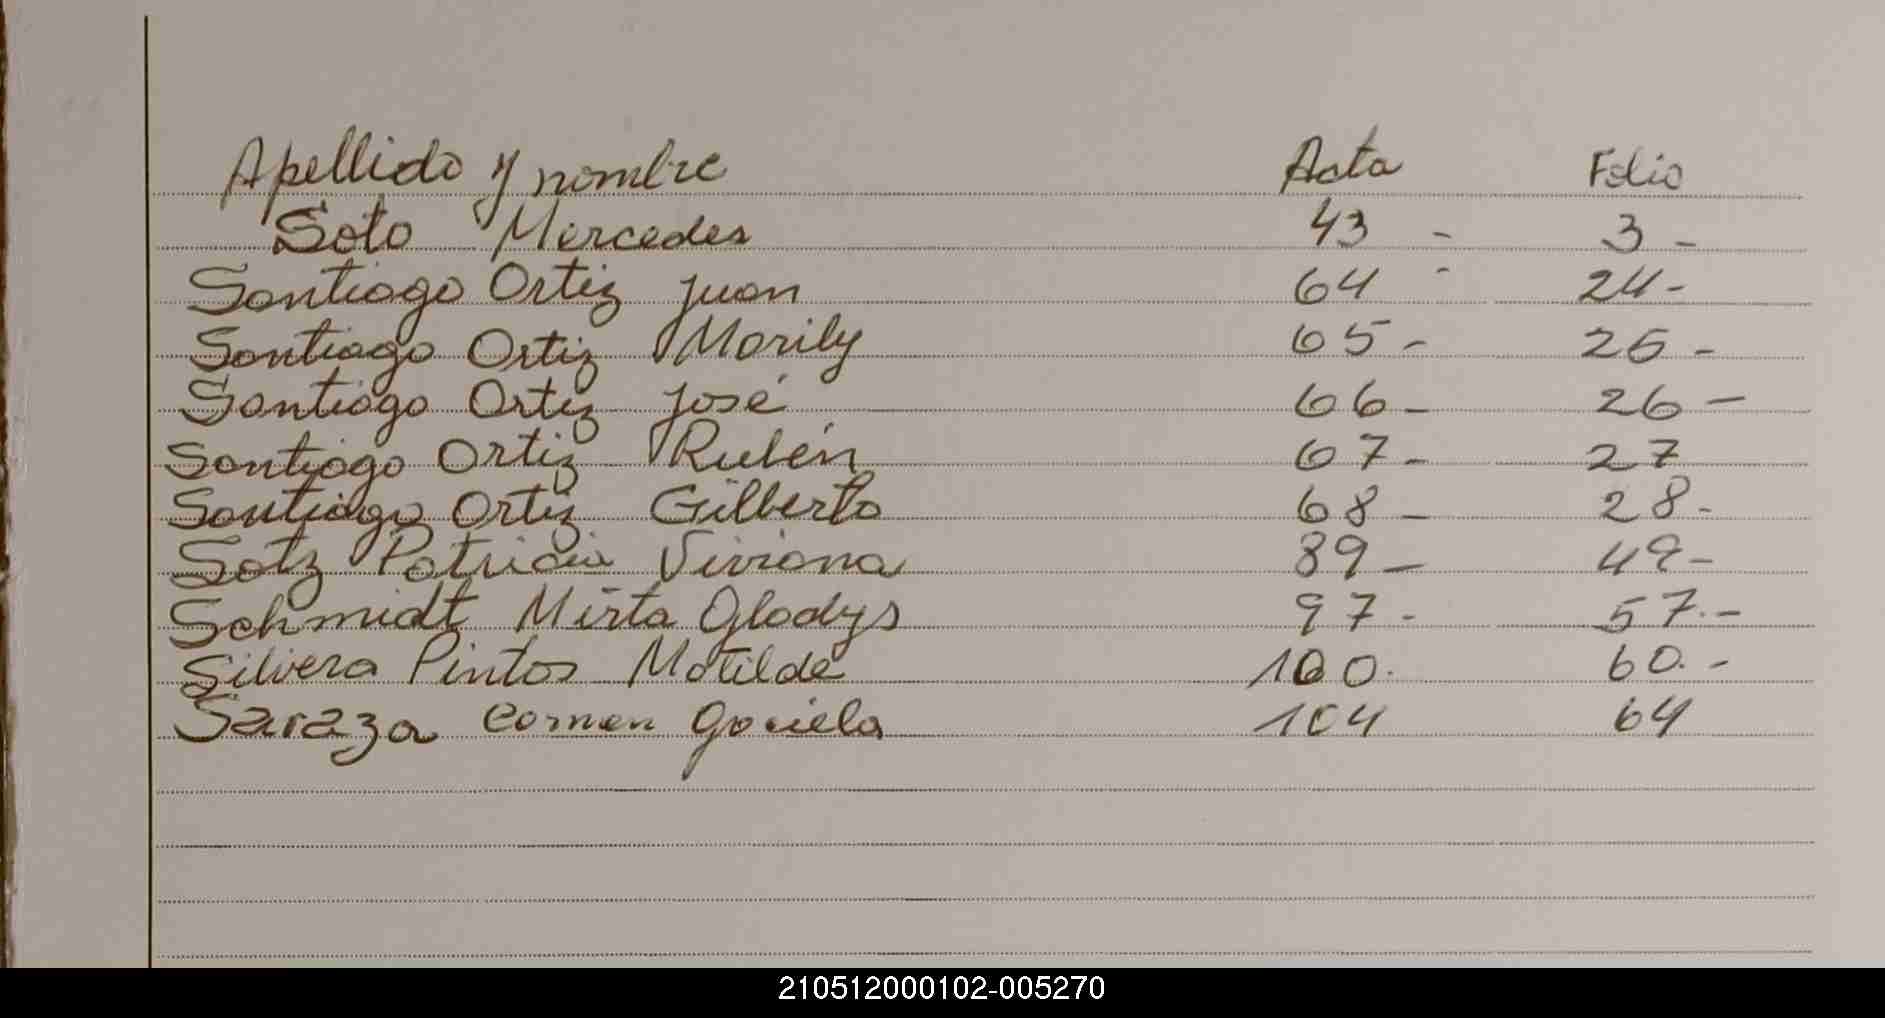 Apellido y nombre Acta Folio
Soto Mercedes 43 - 3 -
Santiago Ortiz Juan 64 - 24 -
Santiago Ortiz Marily 65 - 25 -
Santiago Ortiz José 66 - 26 -
Santiago Ortiz Rubén 67 - 27
Santiago Ortiz Gilberto 68 - 28 -
Sotz Patricia Viviana 89 - 49 -
Schmidt Mirta Gladys 97 - 57. -
Silvera Pintos Matilde 100. 60. -
Saraza Carmen Graciela 104 64
210512000102-005270